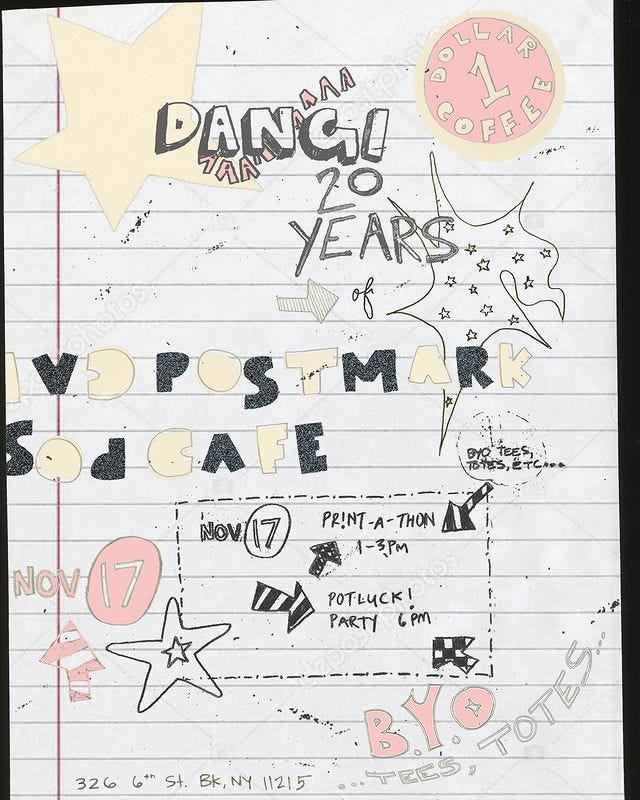 DOLLAR
1
COFFEE
DANG!
20
YEARS
of
POSTMARK
CAFE
BYO TEES,
TOTES, ETC...
NOV 17
PRINT-A-THON
1-3PM
POTLUCK!
PARTY 6PM
NOV 17
B.Y.O
...TEES, TOTES...
326 6th St. BK, NY 11215